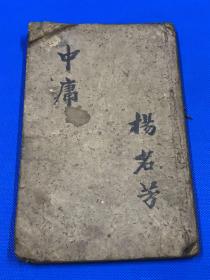 中庸
楊若芳